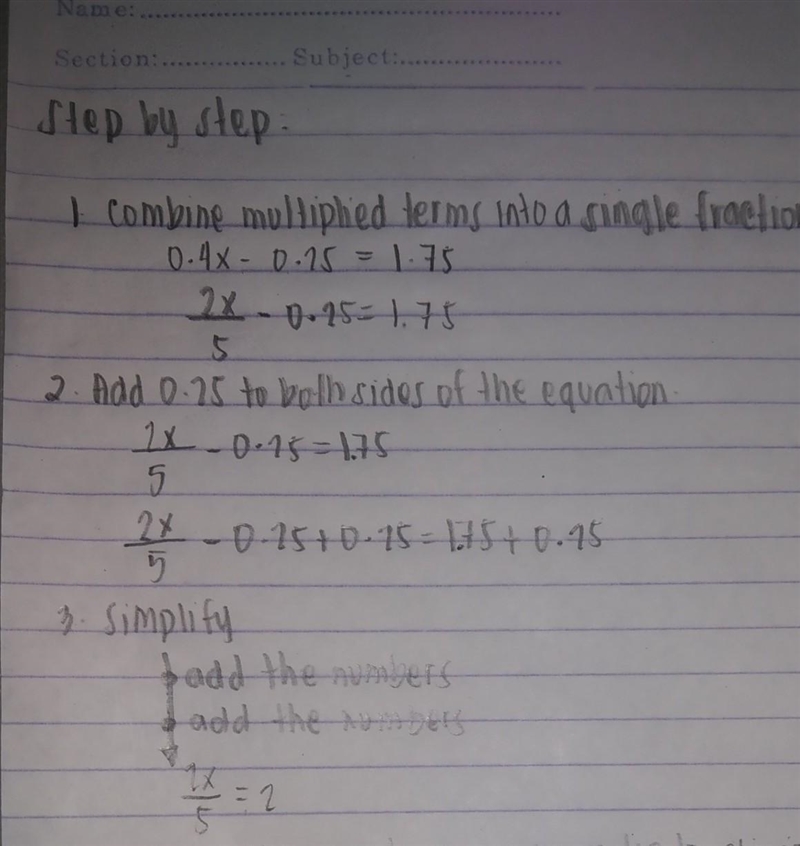 Name:
Section: Subject:
Step by step:
1. Combine multiplied terms into a single fraction
0.4x - 0.25 = 1.75
2x/5 - 0.25 = 1.75
2. Add 0.25 to both sides of the equation.
2x/5 - 0.25 = 1.75
2x/5 - 0.25 + 0.25 = 1.75 + 0.25
3. Simplify
add the numbers
add the numbers
2x/5 = 2